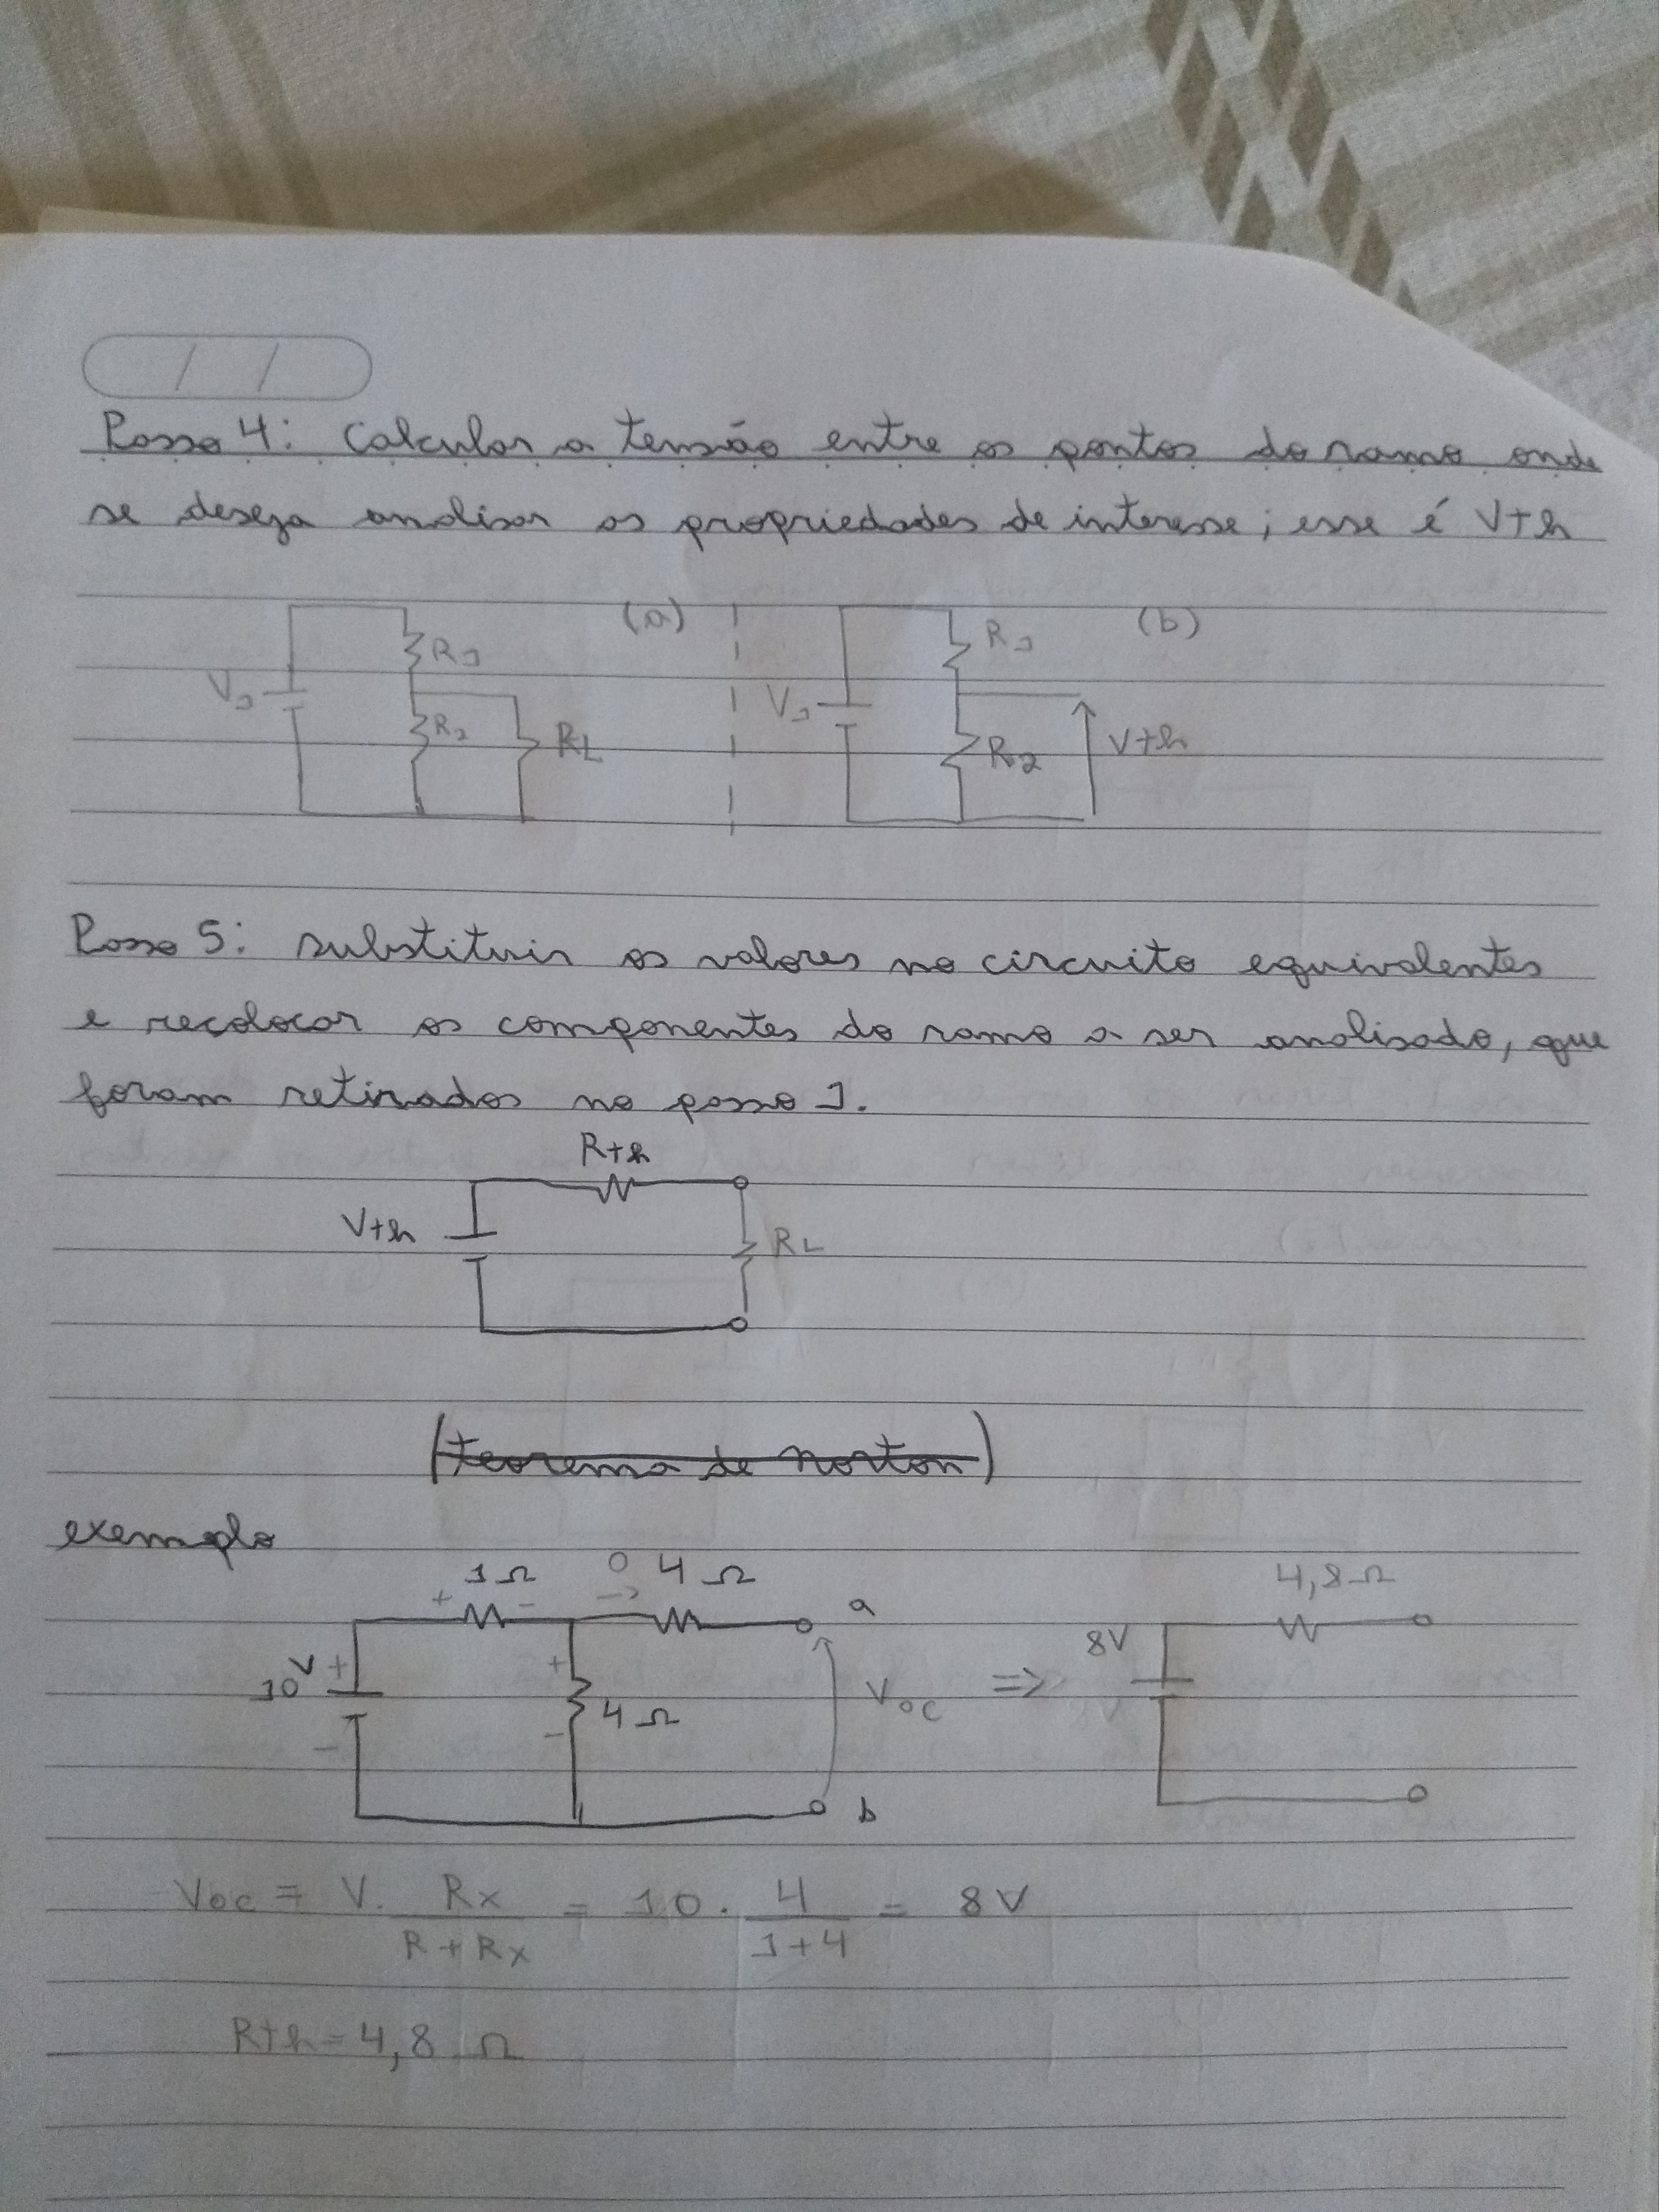 Passo 4: Calcular a tensão entre os pontos do ramo onde
se deseja analisar as propriedades de interesse; esse é Vth
(a) (b)
R1 R1
V1 V1
R2 RL R2 Vth
Passo 5: substituir os valores no circuito equivalentes
e recolocar os componentes do ramo a ser analisado, que
foram retirados no passo 1.
Rth
Vth RL
(teorema de Norton)
exemplo
1Ω 0 4Ω 4,8Ω
+ - -> a
10V + + 4Ω Voc => 8V
- - b
Voc = V. Rx / R + Rx = 10 . 4 / 1+4 = 8V
Rth = 4,8 Ω